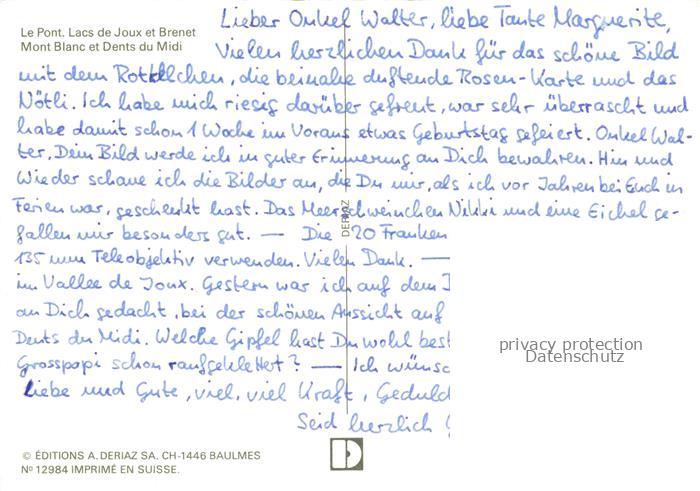 Le Pont. Lacs de Joux et Brenet
Mont Blanc et Dents du Midi
Lieber Onkel Walter, liebe Tante Marguerite,
Vielen herzlichen Dank für das schöne Bild
mit dem Rotkelchen, die beinahe duftende Rosen-Karte und das
Nötli. Ich habe mich riesig darüber gefreut, war sehr überrascht und
habe damit schon 1 Woche im Voraus etwas Geburtstag gefeiert. Onkel Wal-
ter, Dein Bild werde ich in guter Erinnerung an Dich bewahren. Hin und
Wieder schaue ich die Bilder an, die Du mir, als ich vor Jahren bei Euch in
Ferien war, geschenkt hast. Das Meerschweinchen Nikki und eine Eichel ge-
fallen mir besonders gut. — Die 20 Franken
135 mm Teleobjektiv verwenden. Vielen Dank. —
im Vallee de Joux. Gestern war ich auf dem
an Dich gedacht, bei der schönen Aussicht auf
Dents du Midi. Welche Gipfel hast Du wohl best
Grosspapi schon raufgeklettert? — Ich wünsc
Liebe und Gute, viel, viel Kraft, Geduld
Seid herzlich
DERIAZ
privacy protection
Datenschutz
© ÉDITIONS A. DERIAZ SA. CH-1446 BAULMES
Nº 12984 IMPRIMÉ EN SUISSE.
D